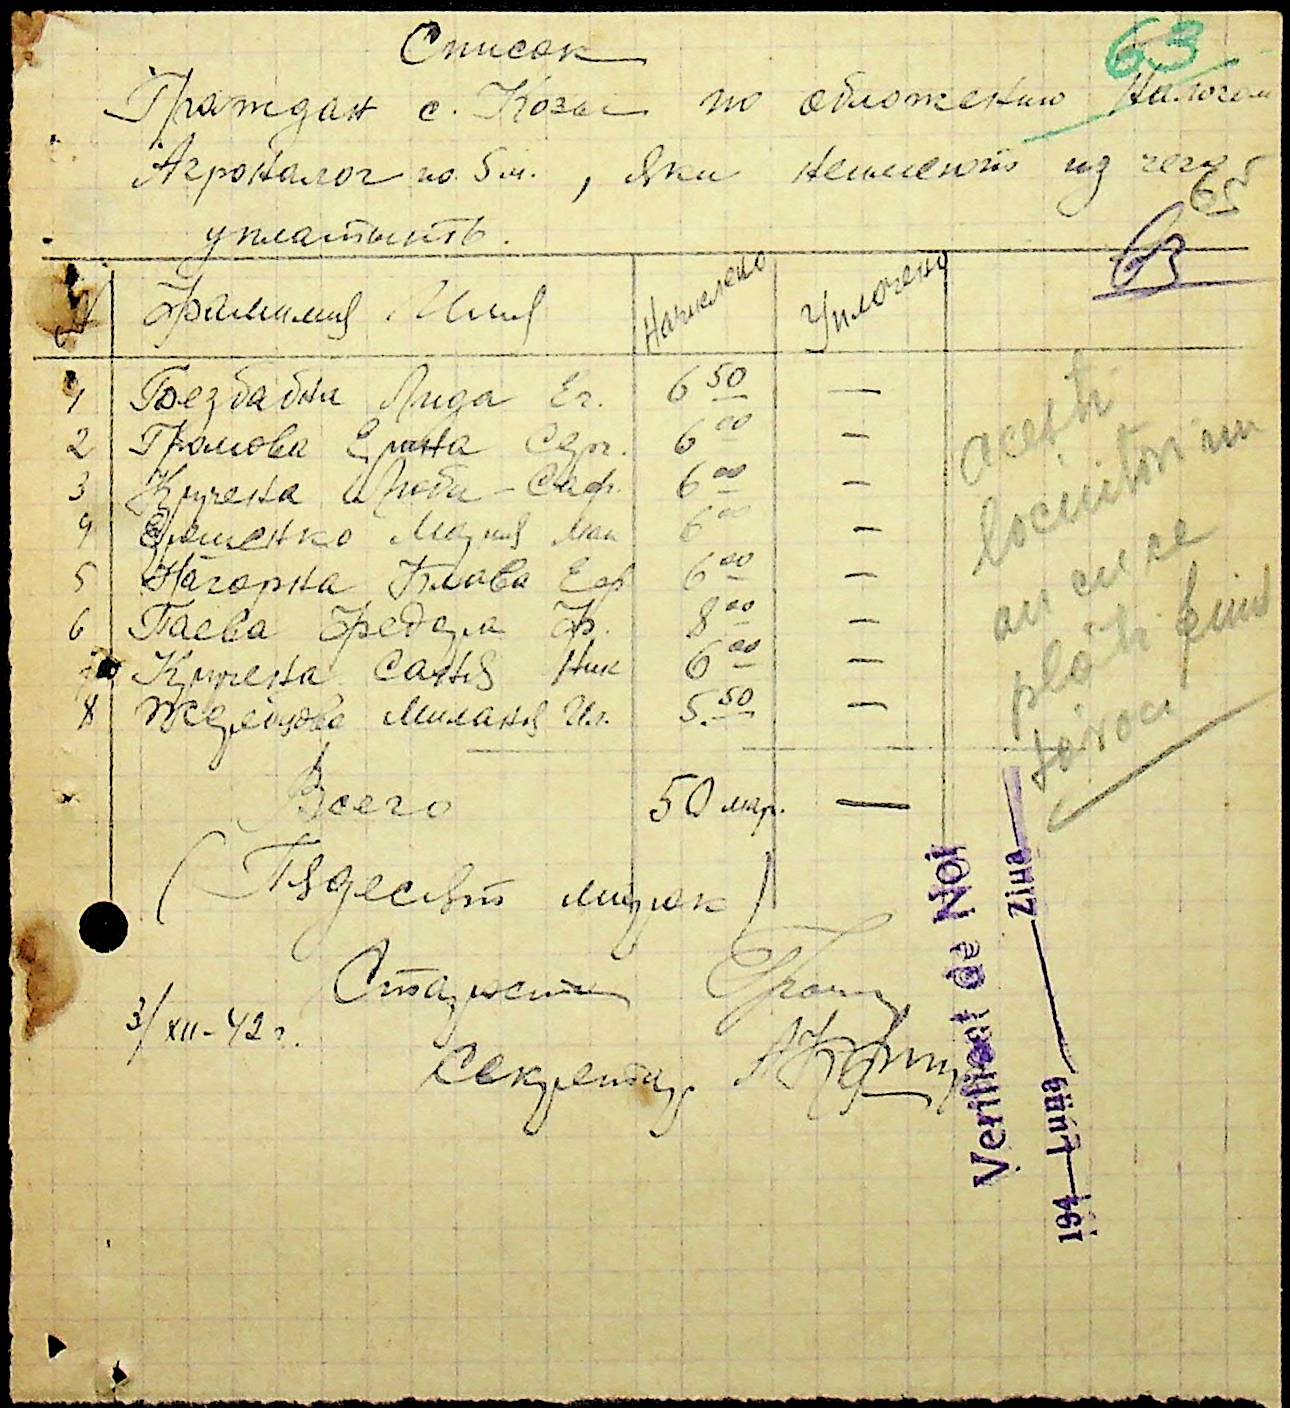 Список
63
Граждан с. Козы по обложению Налогом
Агроналог по 5 м., яки неимеють из чего
65
уплатить.
63
№ Фамилия Имя Начислено Уплочено
1 Безбабна Лида Ег. 6 50 —
2 Громова Ерина Серг. 6 00 —
3 Кручена Люба Саф. 6 00 —
4 Ерошенко Мария 6 00 —
5 Нагорна Клава Еф 6 00 —
6 Паева Ф. 8 00 —
7 Кручена Саня Ник 6 00 —
8 Милания Ил. 5.50 —
Всего 50 мар. —
(Пядесят марок)
Староста
3/XII-42 г.
Секретар
acești
locuitori nu
au cu ce
plăti fiind
săraci
Verificat de Noi
Ziua
194 Luna